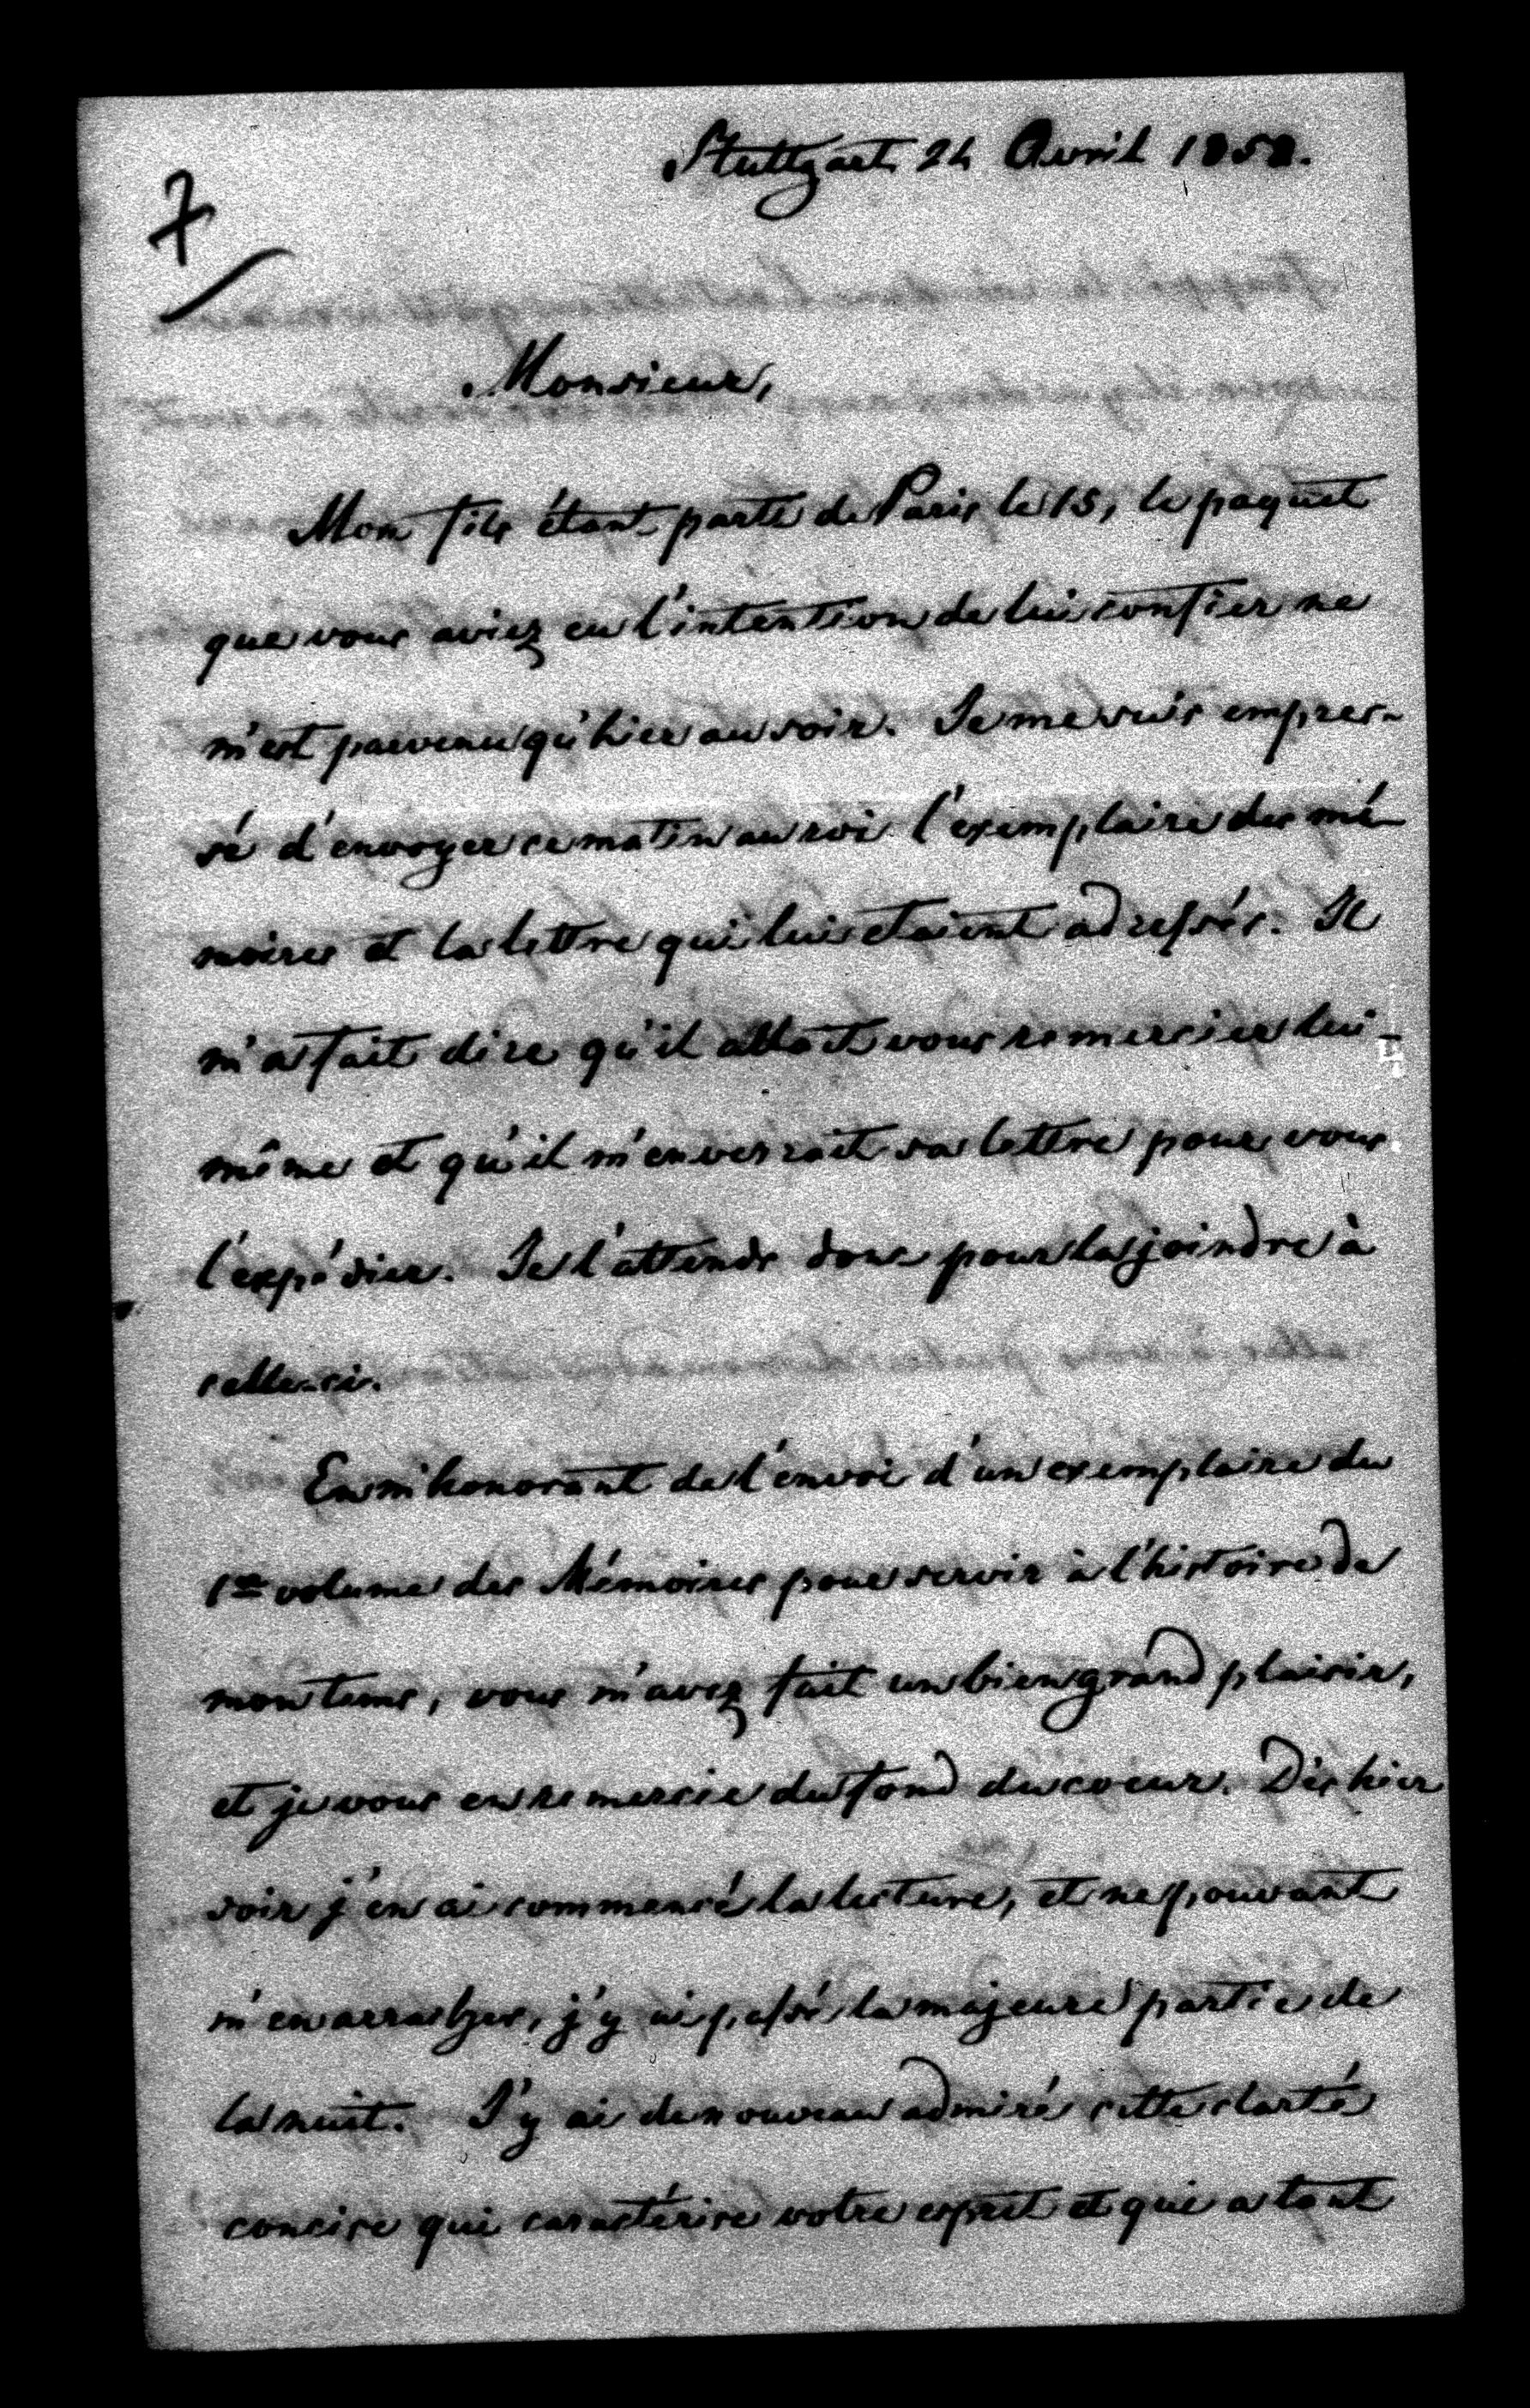 7
Stuttgart 24 Avril 1858.
Monsieur,
Mon fils étant parti de Paris le 15, le paquet
que vous aviez eu l'intention de lui confier ne
m'est parvenu qu'hier au soir. Je me suis empres-
sé d'envoyer ce matin au roi l'exemplaire des mé-
moires et la lettre qui lui etaient adressés. Il
m'a fait dire qu'il allait vous remercier lui-
même et qu'il m'enverrait sa lettre pour vous
l'expédier. Je l'attends donc pour la joindre à
celle-ci.
En m'honorant de l'envoi d'un exemplaire du
1er volume des Mémoires pour servir à l'histoire de
mon tems, vous m'avez fait un bien grand plaisir,
et je vous en remercie du fond du coeur. Dès hier
soir j'en ai commencé la lecture, et ne pouvant
m'en arracher, j'y ai passé la majeure partie de
la nuit. J'y ai de nouveau admiré cette clarté
concise qui caractérise votre esprit et qui a tant